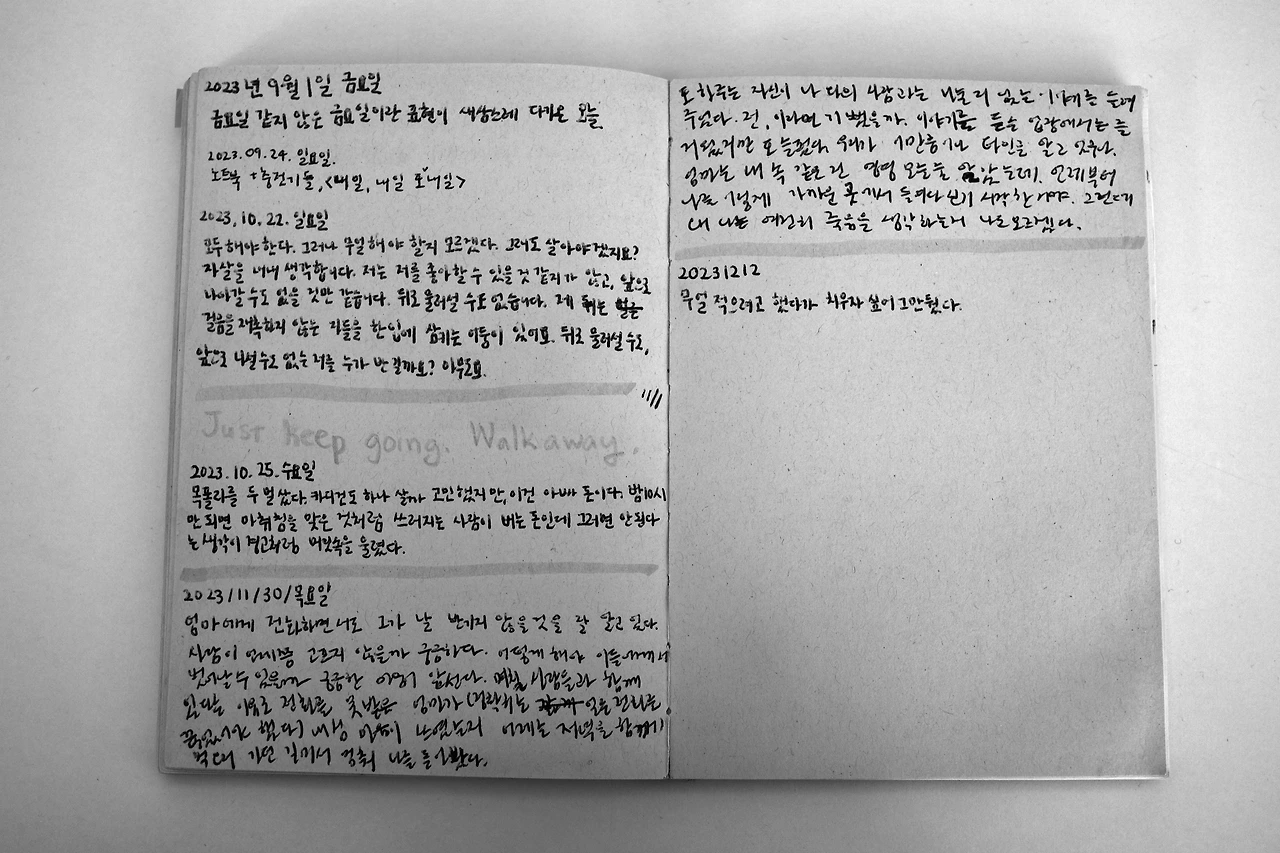 2023년 9월 1일 금요일
금요일 같지 않은 금요일이란 표현이 새삼스레 다가온 오늘.
2023.09.24. 일요일.
노트북 + 충전기들, <내일, 내일 또 내일>
2023, 10. 22. 일요일
모두 해야 한다. 그러나 무얼 해야 할지 모르겠다. 그래도 살아야겠지요?
자살을 내내 생각합니다. 저는 저를 좋아할 수 있을 것 같지가 않고, 앞으로
나아갈 수도 없을 것만 같습니다. 뒤로 물러설 수도 없습니다. 제 뒤는
걸음을 재촉하지 않는 자들을 한입에 삼키는 어둠이 있어요. 뒤로 물러설 수도,
앞으로 나설 수도 없는 저를 누가 반길까요? 아무도요.
Just keep going. Walk away.
2023. 10. 25. 수요일
목폴라를 두 벌 샀다. 카디건도 하나 살까 고민했지만, 이건 아빠 돈이다. 밤 10시
만 되면 마취총을 맞은 것처럼 쓰러지는 사람이 버는 돈인데 그러면 안 된다
는 생각이 경고처럼 머릿속을 울렸다.
2023/11/30/목요일
엄마에게 전화하면서도 그가 날 반기지 않을 것을 잘 알고 있다.
사람이 언제쯤 고프지 않을까 궁금하다. 어떻게 해야 이들에게서
벗어날 수 있을까 궁금한 마음이 앞선다. 사람들과 함께
있다는 이유로 전화를 못 받은 엄마가
내심 나였는지 어제는 저녁을 함께
가던 길에서 멈춰 나를 돌아봤다.
또 하루는 자신이 나 다의 사람과는 나눌 리 없는 이야기를 들려
주었다. 전, 이라면 기뻤을까. 이야기를 듣는 입장에서는 즐
거웠지만 또 슬펐다. 우리가 이만큼이나 타인을 알고 있구나.
엄마는 내 속 같은 건 영영 모를 줄 알았는데. 언제부터
나를 그렇게 가까운 곳에서 들여다보기 시작한 거야. 그런데
왜 나는 여전히 죽음을 생각하는지 나도 모르겠다.
20231212
무얼 적으려고 했다가 치우자 싶어 그만뒀다.